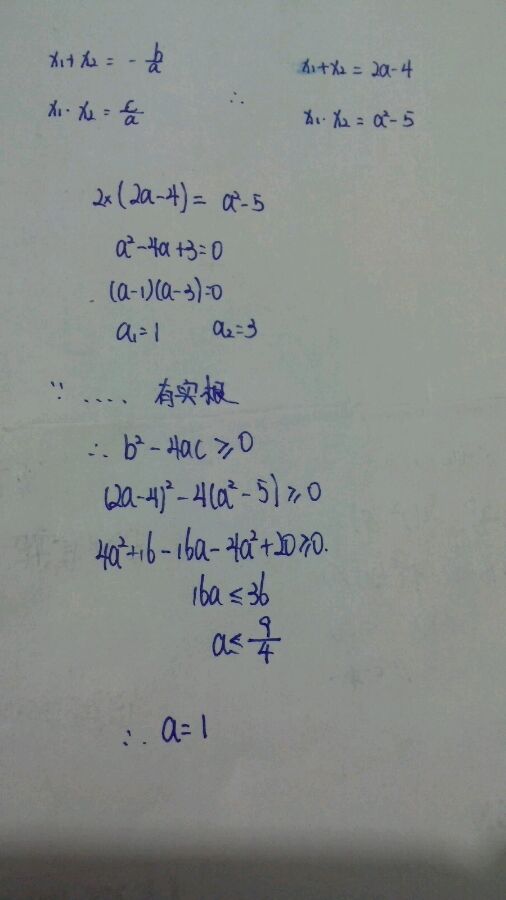 x₁+x₂ = -b/a
x₁·x₂ = c/a
∴
x₁+x₂ = 2a-4
x₁·x₂ = a²-5
2×(2a-4) = a²-5
a²-4a+3=0
(a-1)(a-3)=0
a₁=1 a₂=3
∵ .... 有实根
∴ b²-4ac ≥ 0
(2a-4)²-4(a²-5) ≥ 0
4a²+16-16a-4a²+20 ≥ 0.
16a ≤ 36
a ≤ 9/4
∴ a=1